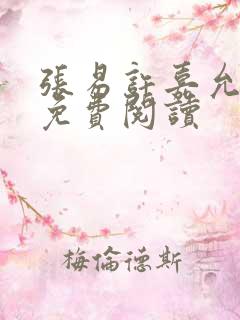 張易許嘉允
免費閱讀
梅倫德斯